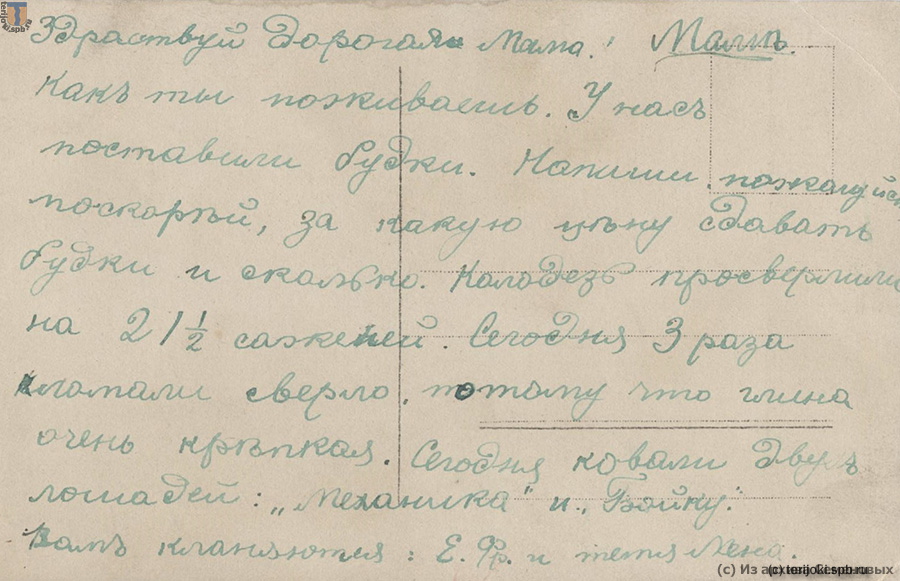 Здраствуй Дорогая Мама! Мамѣ.
Какъ ты поживаешь. У насъ
поставили будки. Напиши пожалуйс
поскорѣй, за какую цѣну сдавать
будки и сколько. Колодезъ просверлили
на 21 1/2 саженей. Сегодня 3 раза
ломали сверло, потому что глина
очень крѣпкая. Сегодня ковали двухъ
лошадей: „Механика" и „Бойку".
Вамъ кланяются: Е. Фр. и тетя Лена.
terijoki.spb.ru
(c) Из архива
(c) terijoki.spb.ru